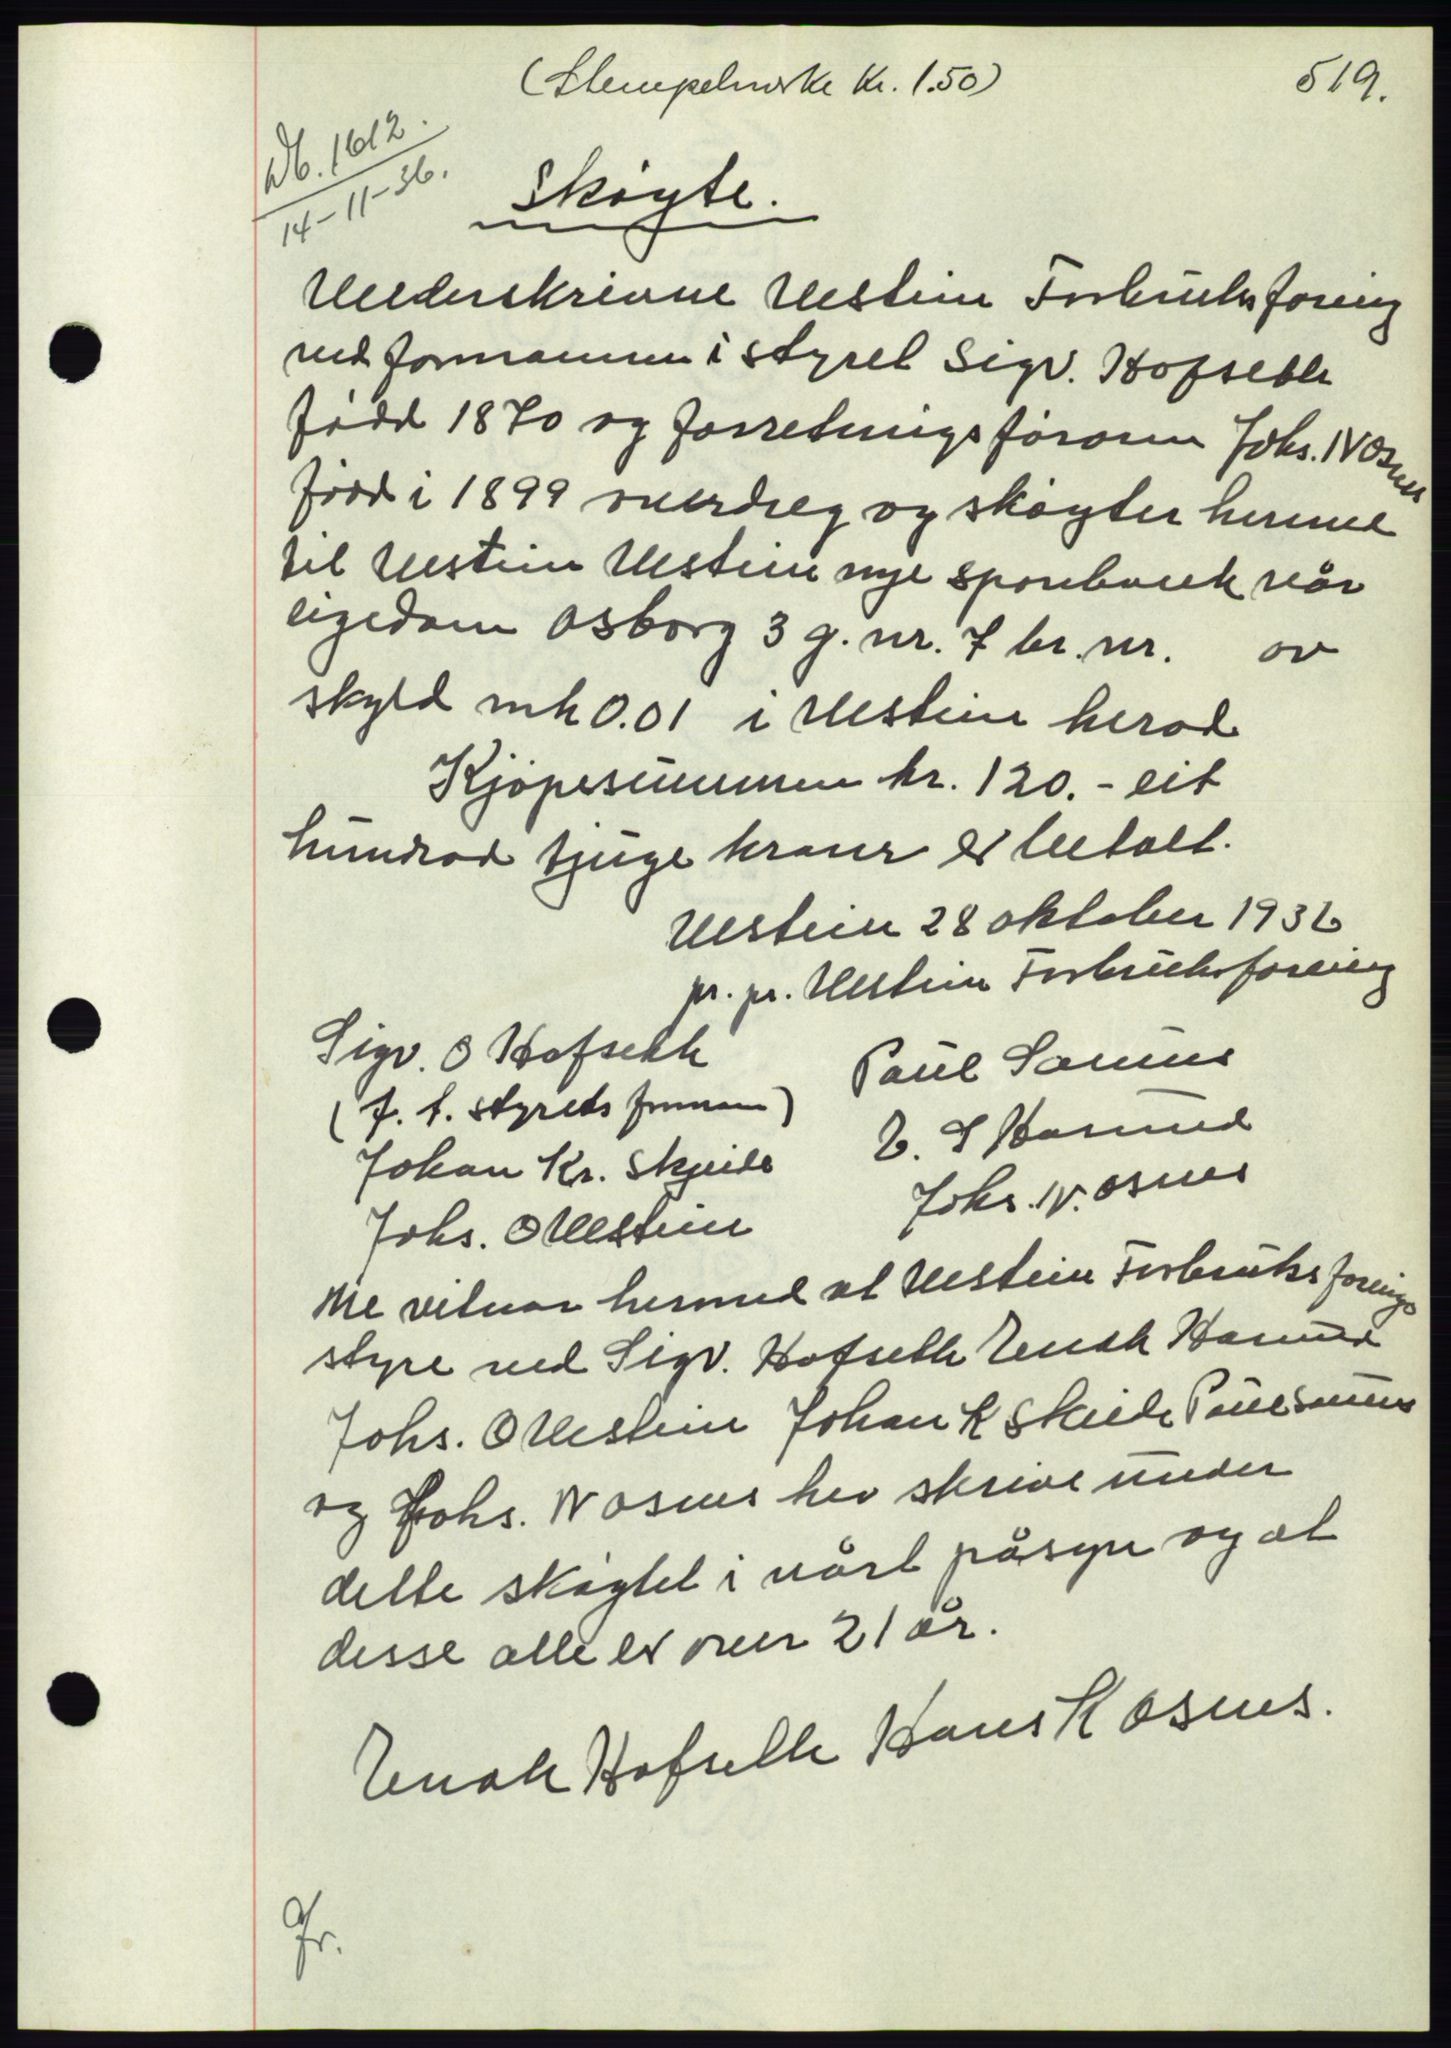 (Stempelmerke Kr. 1.50)
519.
Db. 1612.
14-11-36.
Skøyte.
Underskrivne Ulstein Forbruksforeing
ved formannen i styret Sigv. Hofseth
född 1870 og forretningsföraren Johs. N Osnes
född i 1899 overdreg og skøyter hermed
til Ulstein Ulstein nye sparebank vår
eigedom Osborg 3 g.nr. 7 br.nr. av
skyld mk 0.01 i Ulstein herad
Kjöpesummen kr. 120.- eit
hundrad tjuge kroner er betalt.
Ulstein 28 oktober 1936
pr. pr. Ulstein Forbruksforeing
Sigv. O Hofseth
(f. t. styrets formann)
Johan Kr. Skjeide
Johs. O Ulstein
Paul Saunes
E. S Hasund
Johs. N. Osnes
Me vitnar hermed at Ulstein Forbruksforeings
styre ved Sigv. Hofseth Enok Hasund
Johs. O Ulstein Johan K Skeide Paul Saunes
og Johs. N Osnes hev skrive under
dette skøytet i vårt påsyn og at
desse alle er over 21 år.
Enok Hofseth Hans K Osnes.
Fr.